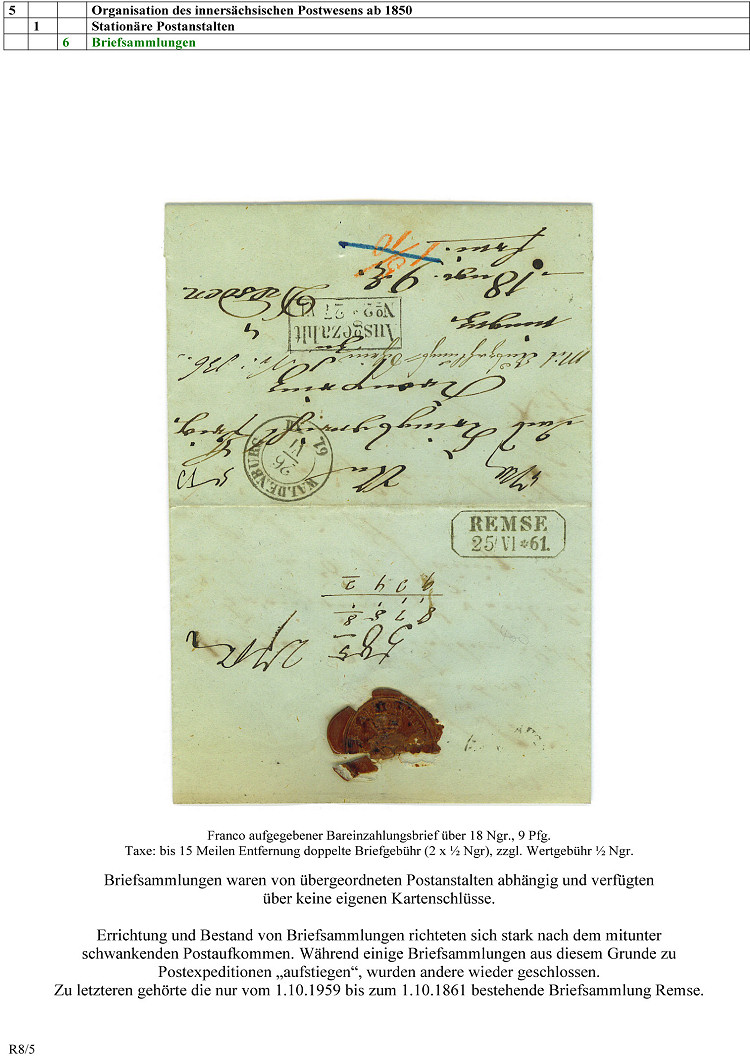 5 Organisation des innersächsischen Postwesens ab 1850
1 Stationäre Postanstalten
6 Briefsammlungen
fran.
18 ngr. 9 d.
Dresden
Ausgezahlt
No 2 * 27 VI
WALDENBURG
26 VI
61
REMSE
25 VI * 61.
Franco aufgegebener Bareinzahlungsbrief über 18 Ngr., 9 Pfg.
Taxe: bis 15 Meilen Entfernung doppelte Briefgebühr (2 x ½ Ngr), zzgl. Wertgebühr ½ Ngr.
Briefsammlungen waren von übergeordneten Postanstalten abhängig und verfügten
über keine eigenen Kartenschlüsse.
Errichtung und Bestand von Briefsammlungen richteten sich stark nach dem mitunter
schwankenden Postaufkommen. Während einige Briefsammlungen aus diesem Grunde zu
Postexpeditionen „aufstiegen“, wurden andere wieder geschlossen.
Zu letzteren gehörte die nur vom 1.10.1959 bis zum 1.10.1861 bestehende Briefsammlung Remse.
R8/5